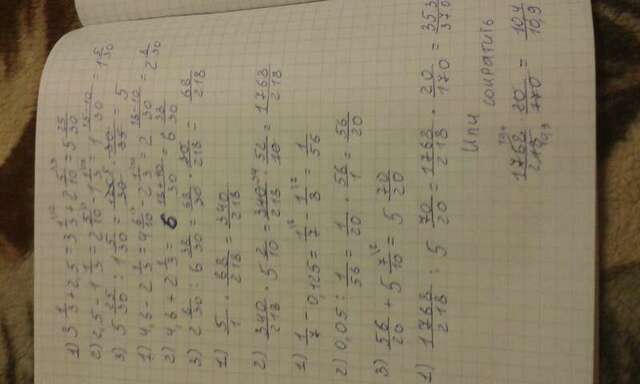 1) 3 1/3 + 2,5 = 3 1/3 + 2 5/10 = 5 25/30
2) 2,5 - 1 1/3 = 2 5/10 - 1 1/3 = 1 15-10/30 = 1 5/30
3) 5 25/30 : 1 5/30 = · 30/35 = 5
1) 4,6 - 2 1/3 = 4 6/10 - 2 1/3 = 2 18-10/30 = 2 8/30
2) 4,6 + 2 1/3 = 6 18+10/30 = 6 38/30
3) 2 8/30 : 6 38/30 = 68/30 · 30/218 = 68/218
1) 5/1 · 68/218 = 340/218
2) 340/218 · 5 2/10 = 340/218 · 52/10 = 1768/218
1) 1/7 - 0,125 = 1/7 - 1/8 = 1/56
2) 0,05 : 1/56 = 1/20 · 56/1 = 56/20
3) 56/20 + 5 7/10 = 5 70/20
1) 1768/218 : 5 70/20 = 1768/218 · 20/170 = 353/370
Или
сократить
1768/218 20/170 = 10,4/10,9